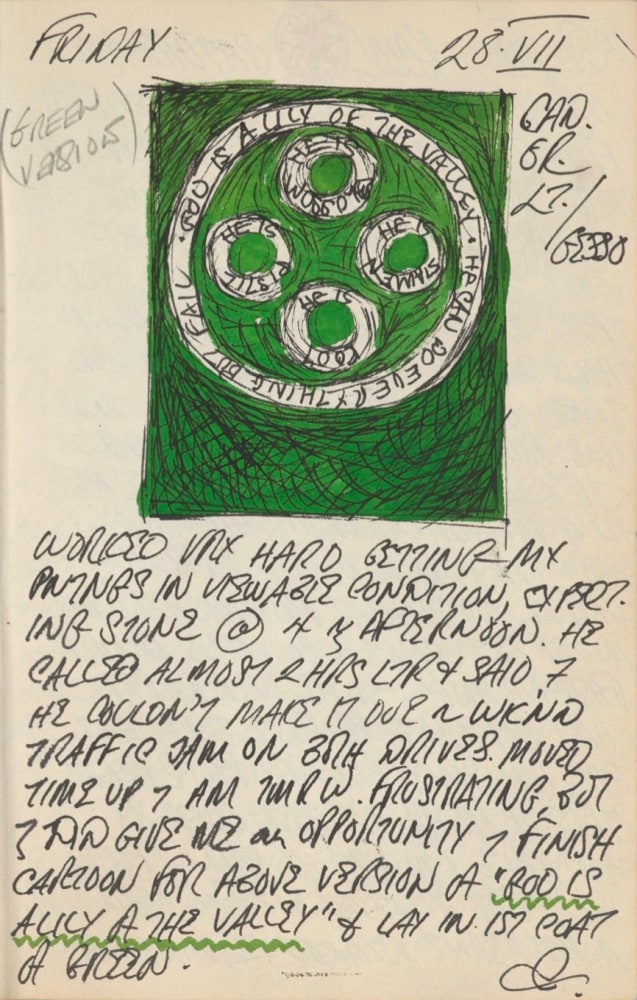 FRIDAY 28·VII
(GREEN
VERSION)
CAD.
GR.
LT./
GESSO
· GOD IS A LILY OF THE VALLEY · HE CAN DO EVERYTHING BUT FAIL
HE IS BLOSSOM
HE IS PISTIL
HE IS STAMEN
HE IS ROOT
WORKED VRY HARD GETTING MY
PNTNGS IN VIEWABLE CONDITION, EXPECT-
ING STONE @ 4 AFTERNOON. HE
CALLED ALMOST 2 HRS LTR & SAID
HE COULDN'T MAKE IT DUE WKND
TRAFFIC JAM ON DRIVES. MOVED
TIME UP AM TMRW. FRUSTRATING, BUT
DID GIVE ME an OPPORTUNITY FINISH
CARTOON FOR ABOVE VERSION "GOD IS
A LILY THE VALLEY" & LAY IN 1ST COAT
GREEN.